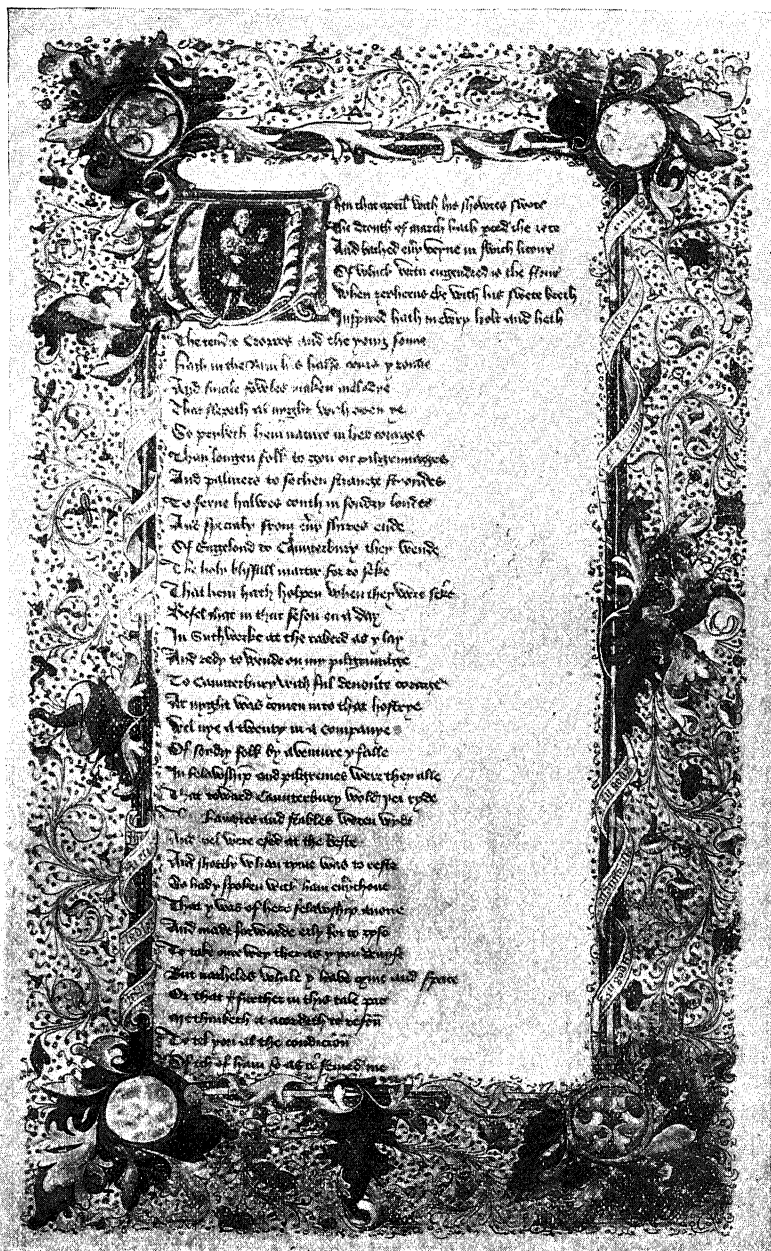 Whan that april with his showres swote
The drouth of march hath peced the rote
And bathed euery veyne in swich licour
Of which vertu engendred is the flour
When zepherus eke with his swete breth
Inspired hath in euery holt and heth
The tendre Croppes and the yong sonne
Hath in the Ram his halfe cours yronne
And smale fowles maken melodye
That slepeth al nyght with open ye
So priketh hem nature in her corages
Than longen folk to gon on pilgrimages
And palmers to sechen strange strondes
To ferne halwes couth in sondry londes
And specialy from euery shyres ende
Of Engelond to Caunterbury they wende
The holy blissfull martir for to seke
That hem hath holpen when they were seke
Befel that in that seson on a day
In Suthwerke at the tabard as y lay
And redy to wende on my pilgrimage
To Caunterbury with ful deuoute corage
At nyght was comen into that hostrye
Wel nye a twenty in a companye
Of sondry folk by aventure y falle
In felawship and pilgrimes were they alle
That toward Caunterbury wold ryde
Chambres and stables weren wyde
And wel were esed at the beste
And shortly whan tyme was to reste
So had y spoken with ham euerychone
That y was of here felawship anone
And made forwarde erly for to ryse
To take oure wey ther as y you deuyse
But natheles while y haue tyme and space
Or that y further in this tale pace
me thinketh it acordeth to reson
To tel you al the condicion
Of ech of ham so as it semed me